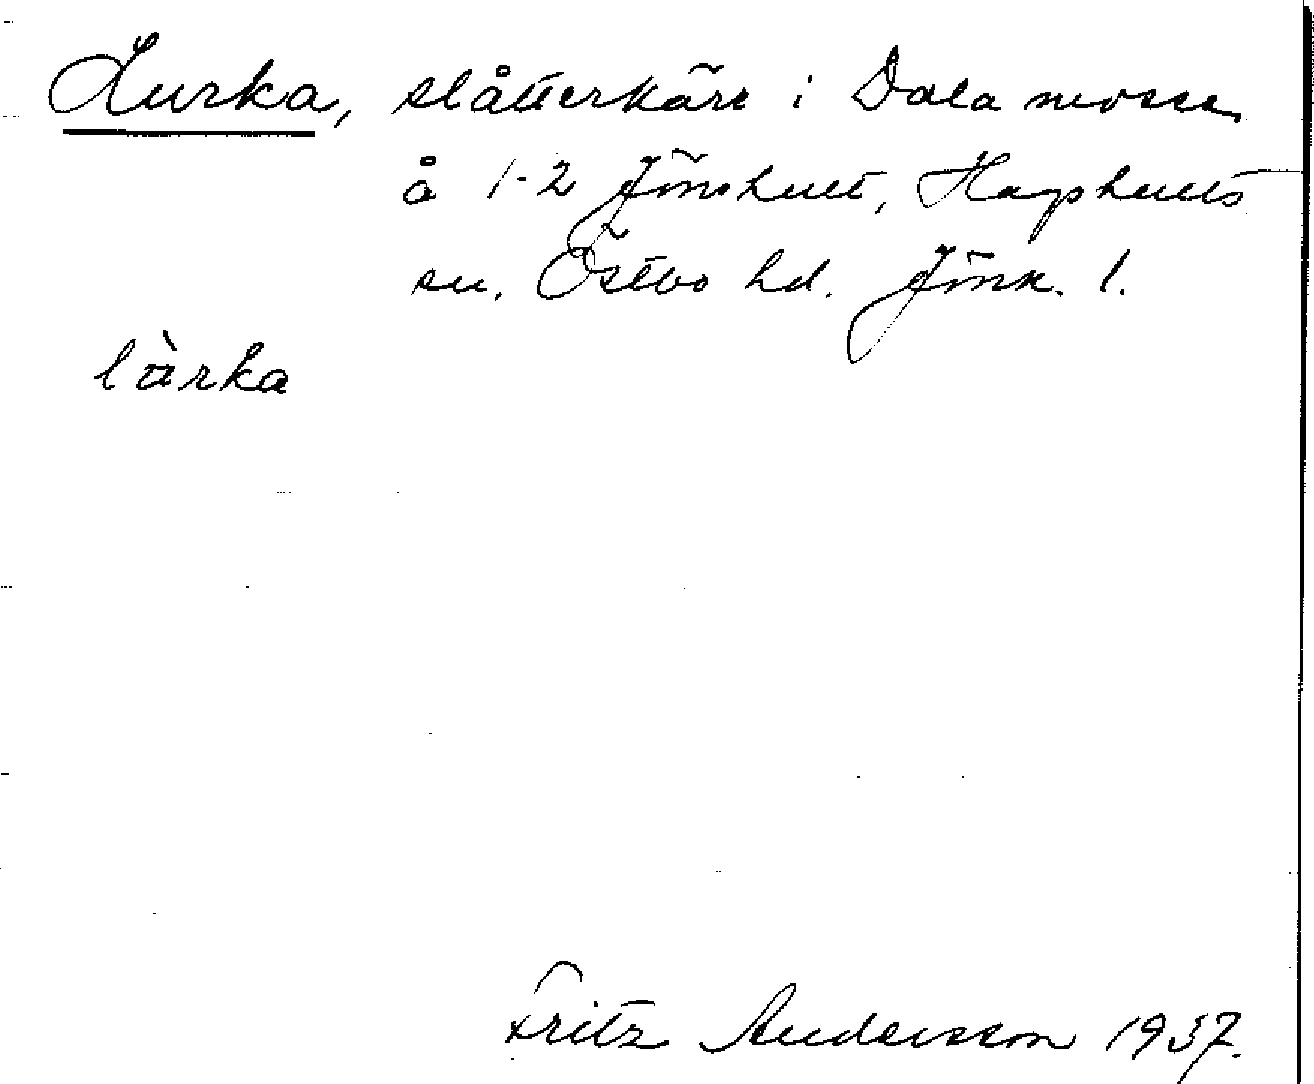 Lurka, slåtterkärr i Dala mosse
å 1-2 Jönshult, Hagshults
sn. Östbo hd. Jönk. l.
lùrka
Fritz Andersson 1937.